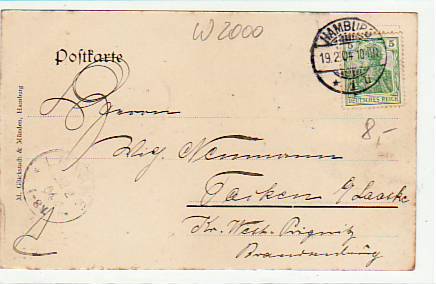 W 2000
Postkarte
HAMBURG
19.2.04 10-11
5
DEUTSCHES REICH
8,-
Herrn
Neumann
Kr. West-Prignitz
Brandenburg
M. Glückstadt & Münden, Hamburg